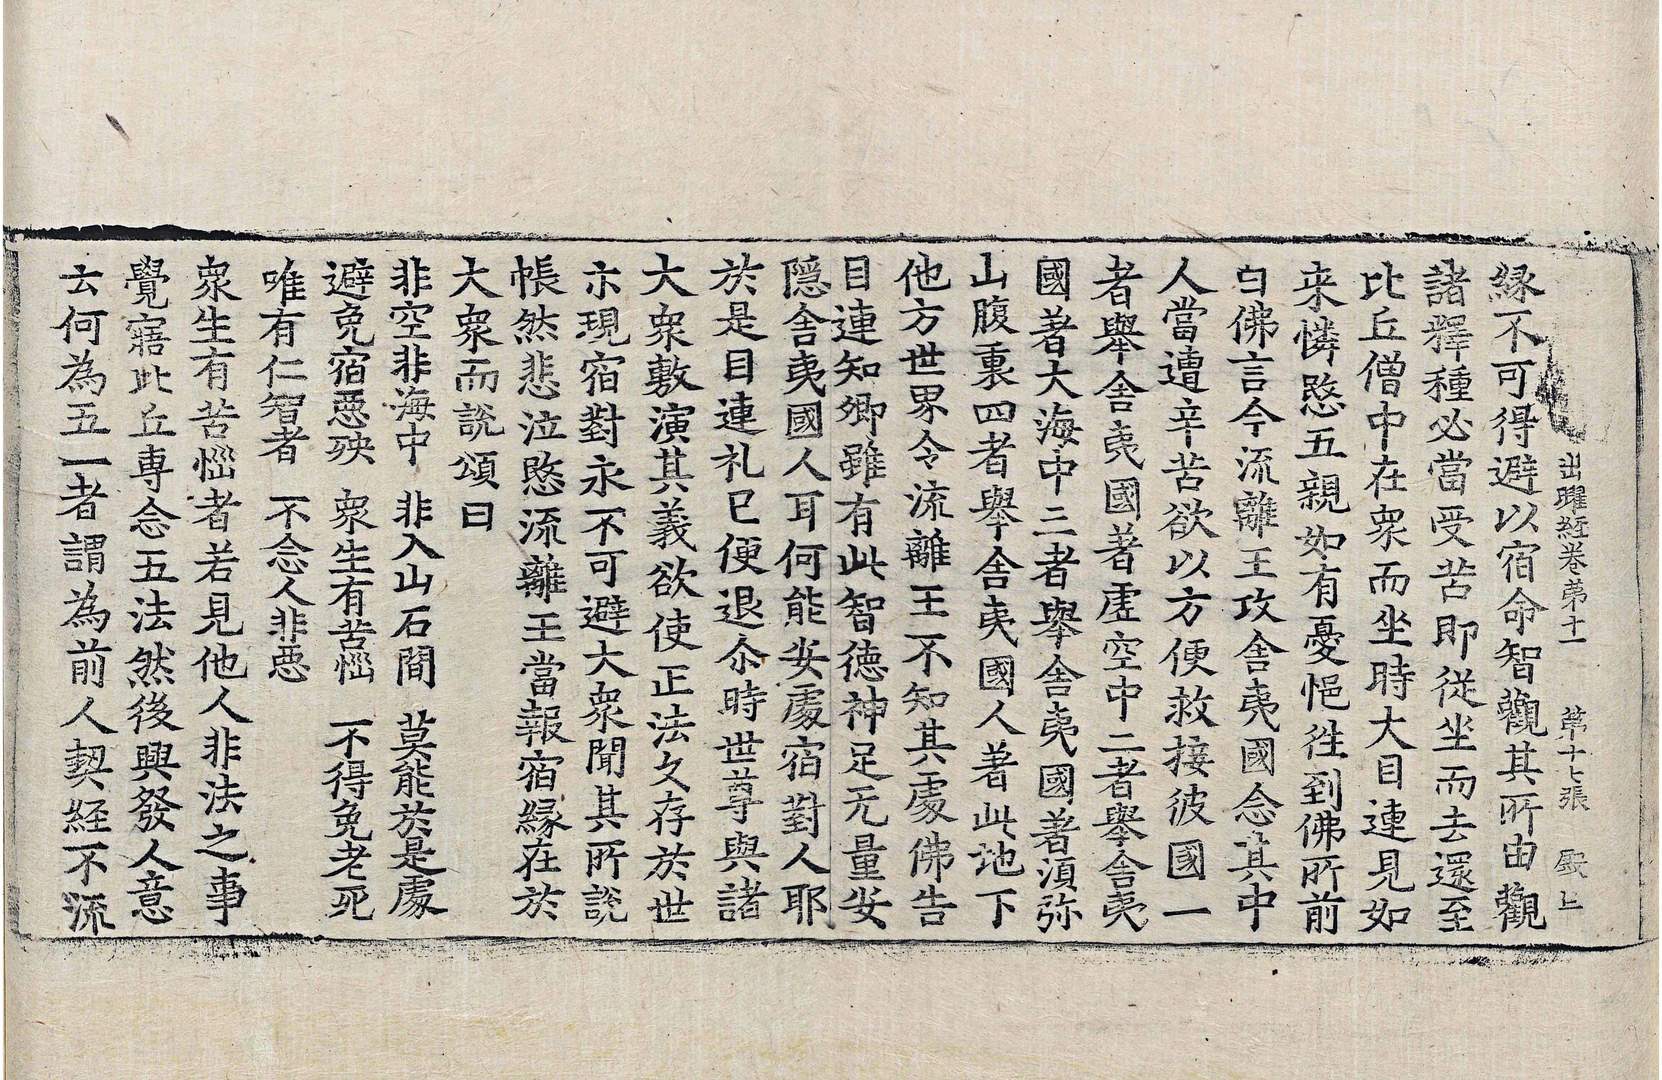 出曜経卷苐十一 第十七張 殿上
緣不可得避以宿命智觀其所由觀
諸釋種必當受苦即從坐而去還至
比丘僧中在衆而坐時大目連見如
来憐愍五親如有憂悒徃到佛所前
白佛言今流離王攻舍夷國念其中
人當遭辛苦欲以方便救接彼國一
者舉舍夷國著虗空中二者舉舍夷
國著大海中三者舉舍夷國著湏弥
山腹裏四者舉舍夷國人著此地下
他方世界令流離王不知其處佛告
目連知卿雖有此智德神足无量安
隱舍夷國人耳何能安處宿對人耶
於是目連礼已便退尒時世尊與諸
大衆敷演其義欲使正法久存於世
示現宿對永不可避大衆聞其所說
帳然悲泣愍流離王當報宿緣在於
大衆而說頌曰
非空非海中 非入山石間 莫能於是處
避免宿惡殃 衆生有苦惱 不得免老死
唯有仁智者 不念人非惡
衆生有苦惱者若見他人非法之事
覺寤比丘専念五法然後興發人意
云何為五一者謂為前人契経不流